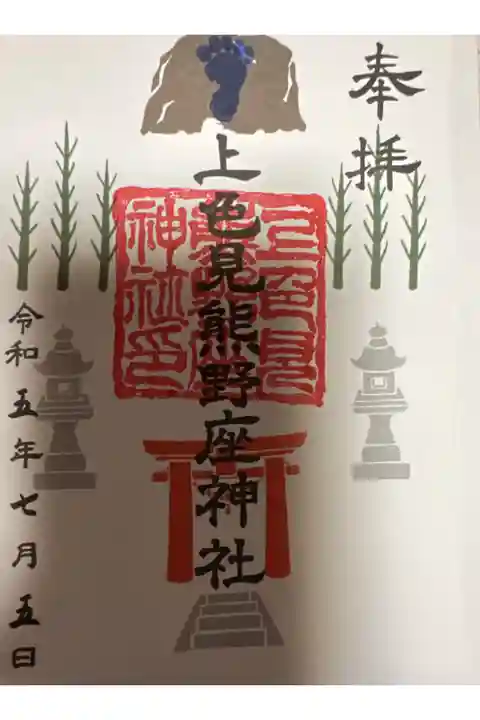 奉拝
上色見熊野座神社
上色見
熊野座
神社印
令和五年七月五日